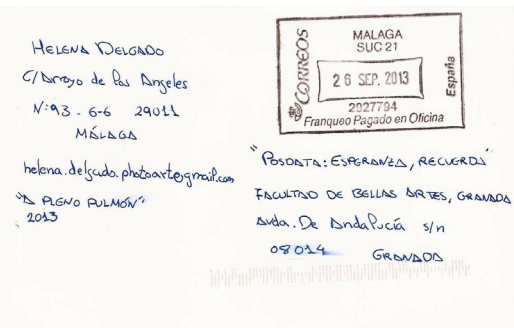 HELENA DELGADO
C/Arroyo de los Angeles
Nº93 - 6-6 29011
MÁLAGA
helena.delgado.photoart@gmail.com
"A PLENO PULMÓN"
2013
CORREOS
MALAGA
SUC 21
26 SEP. 2013
2927794
España
Franqueo Pagado en Oficina
"POSDATA: ESPERANZA, RECUERDA"
FACULTAD DE BELLAS ARTES, GRANADA
Avda. De Andalucía s/n
08014 GRANADA